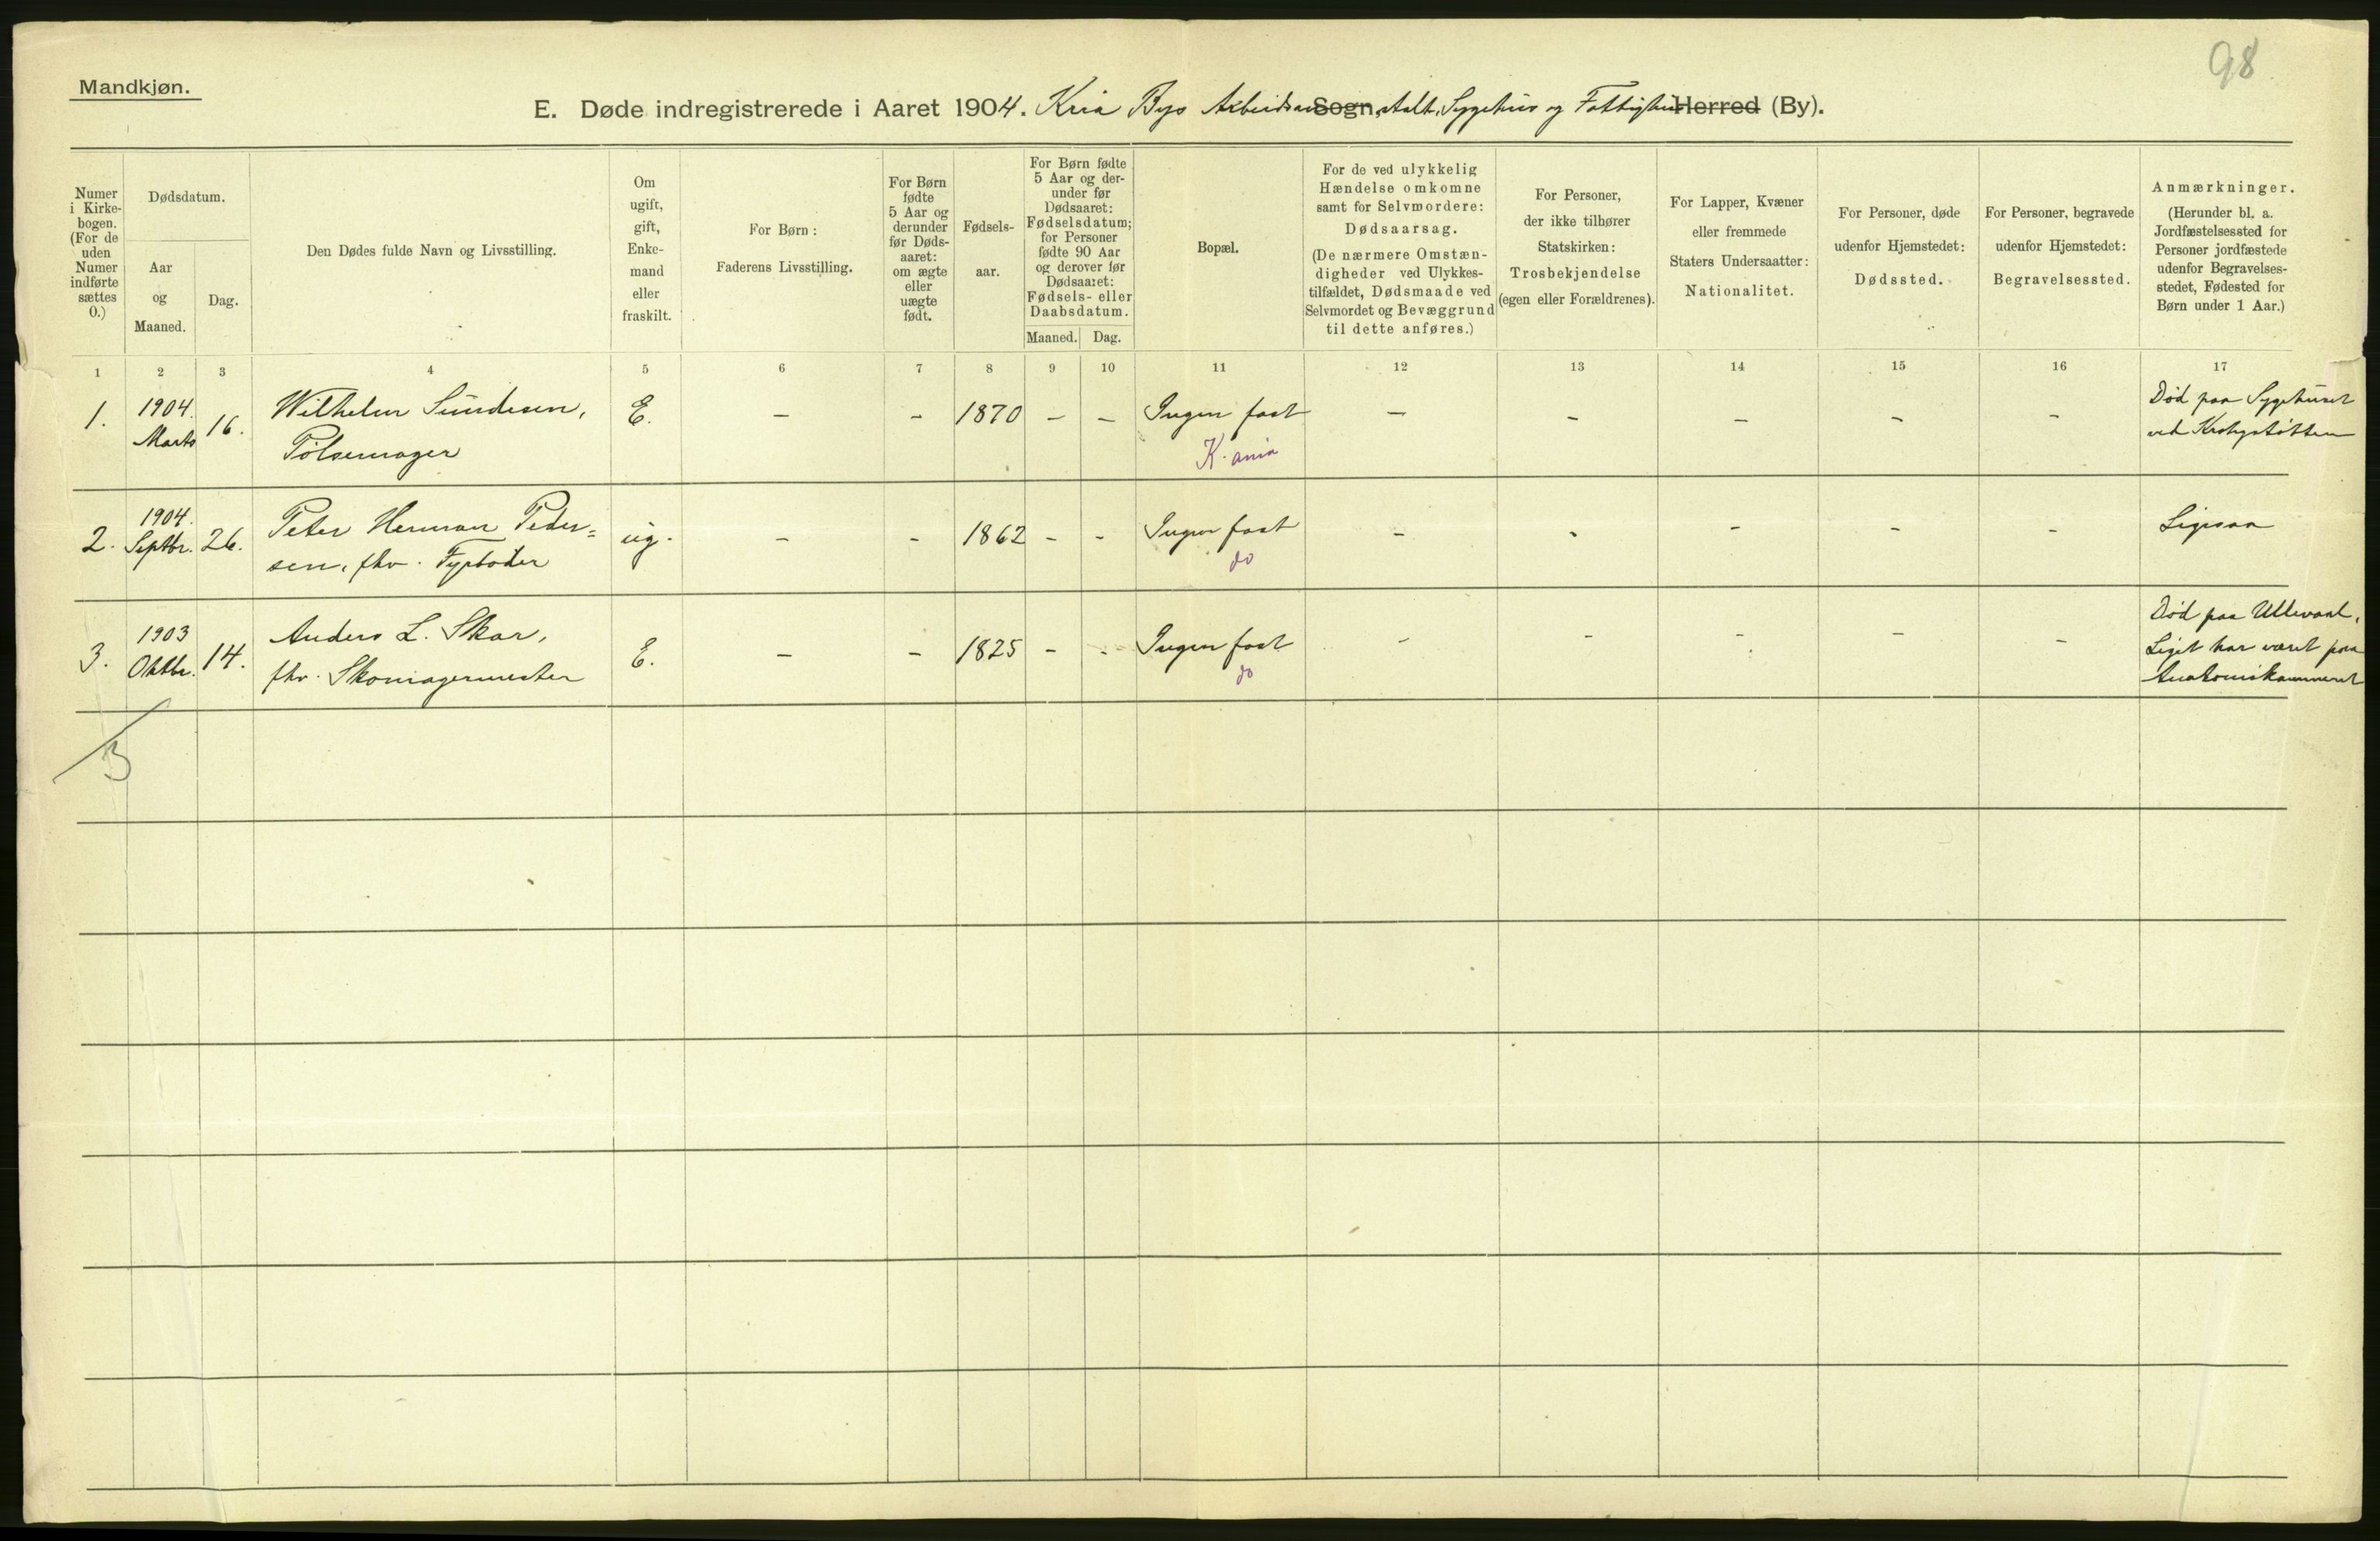 98
Mandkjøn.
E. Døde indregistrerede i Aaret 1904. Kria Bys Arbeidsan Sogn, stalt, Sygehus og Fattighus Herred (By).
Numer
i Kirke-
bogen.
(For de
uden
Numer
indførte
sættes
0.)
Dødsdatum.
Aar
og
Maaned.
Dag.
Den Dødes fulde Navn og Livsstilling.
Om
ugift,
gift,
Enke-
mand
eller
fraskilt.
For Børn:
Faderens Livsstilling.
For Børn
fødte
5 Aar og
derunder
før Døds-
aaret:
om ægte
eller
uægte
født.
Fødsels-
aar.
For Børn fødte
5 Aar og der-
under før
Dødsaaret:
Fødselsdatum;
for Personer
fødte 90 Aar
og derover før
Dødsaaret:
Fødsels- eller
Daabsdatum.
Maaned. Dag.
Bopæl.
For de ved ulykkelig
Hændelse omkomne
samt for Selvmordere:
Dødsaarsag.
(De nærmere Omstæn-
digheder ved Ulykkes-
tilfældet, Dødsmaade ved
Selvmordet og Bevæggrund
til dette anføres.)
For Personer,
der ikke tilhører
Statskirken:
Trosbekjendelse
(egen eller Forældrenes).
For Lapper, Kvæner
eller fremmede
Staters Undersaatter:
Nationalitet.
For Personer, døde
udenfor Hjemstedet:
Dødssted.
For Personer, begravede
udenfor Hjemstedet:
Begravelsessted.
Anmærkninger.
(Herunder bl. a.
Jordfæstelsessted for
Personer jordfæstede
udenfor Begravelses-
stedet, Fødested for
Børn under 1 Aar.)
1 2 3 4 5 6 7 8 9 10 11 12 13 14 15 16 17
1. 1904. Marts 16. Wilhelm Sundesen, E. – – 1870 – – Ingen fast – – – – – Død paa Sygehuset
Pølsemager K.ania ved Krohgstøtten
2. 1904. Septbr. 26. Peter Herman Peder= ug. – – 1862 – – Ingen fast – – – – – Ligesaa
sen, fhv. Fyrbøder do
3. 1903 Oktbr. 14. Anders L. Skar, E. – – 1825 – – Ingen fast – – – – – Død paa Ullevaal,
fhv. Skomagermester do Liget har været paa
Anatomikammeret
3